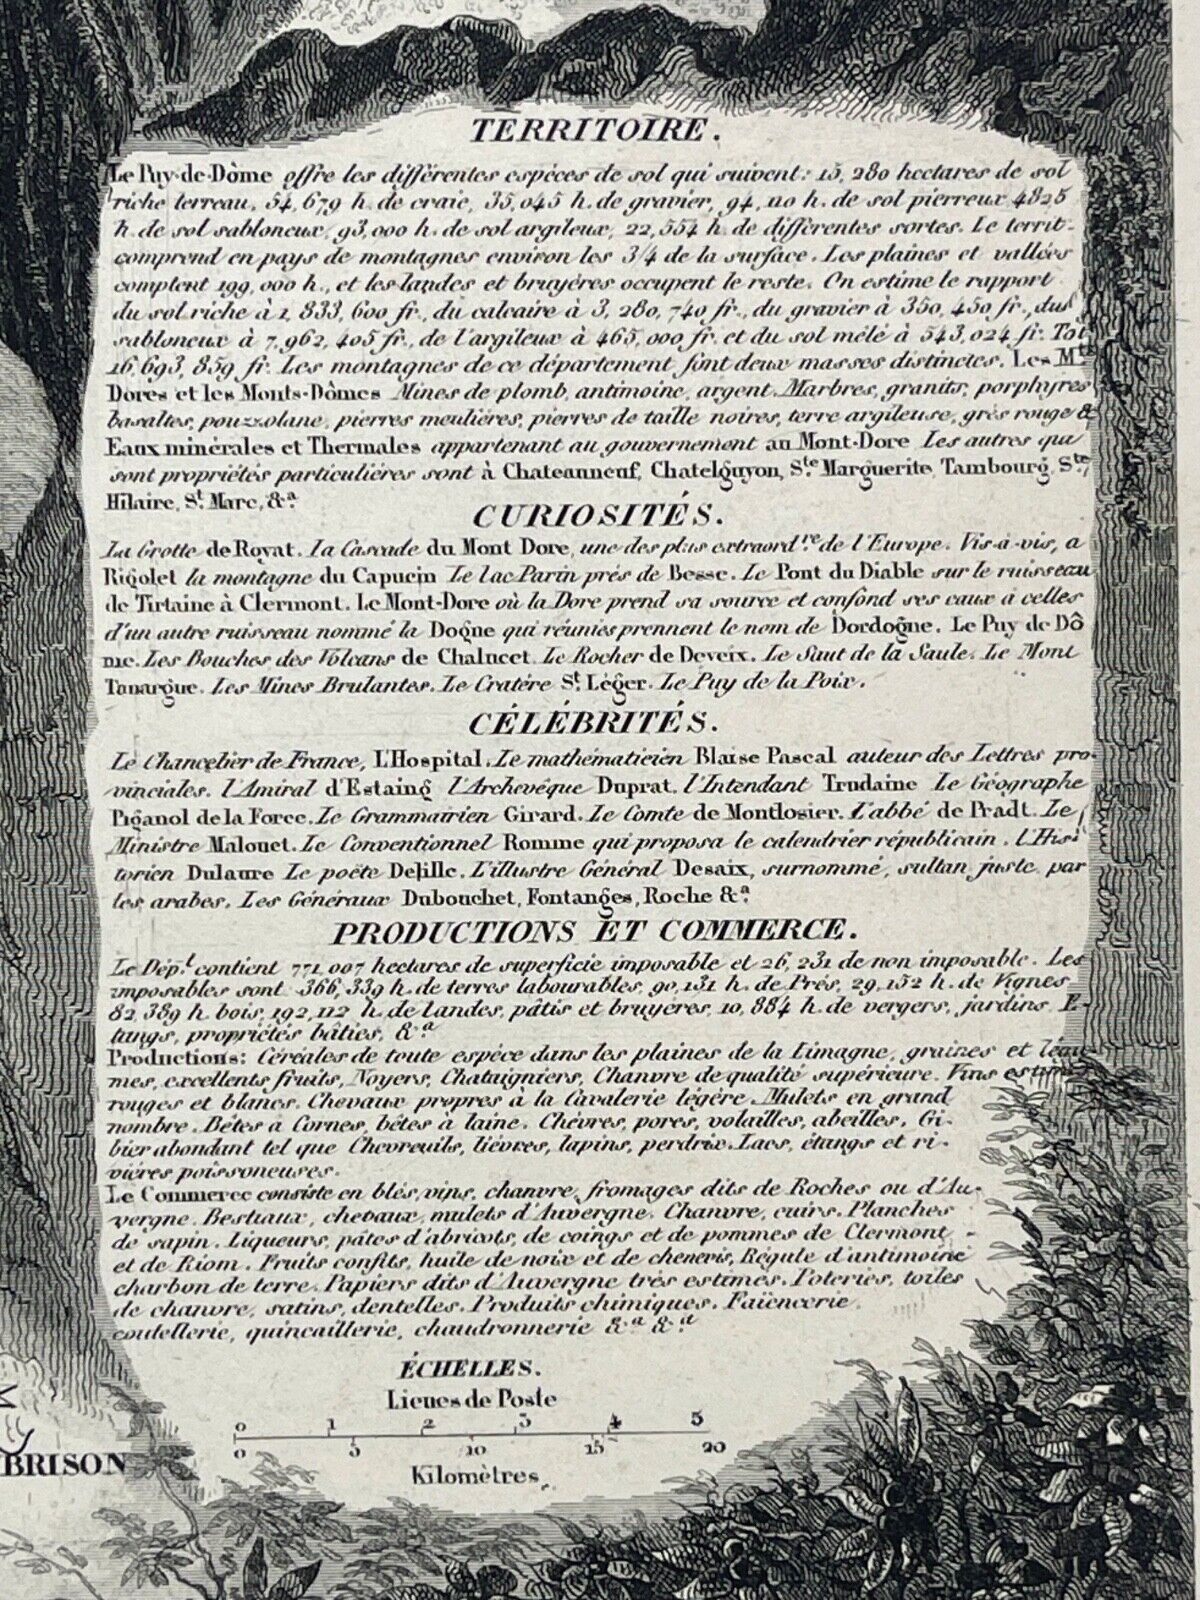 TERRITOIRE.
Le Puy-de-Dôme offre les différentes espèces de sol qui suivent: 15,280 hectares de sol
riche terreau, 54,679 h. de craie, 35,045 h. de gravier, 94,110 h. de sol pierreux 4825
h. de sol sabloneux, 93,000 h. de sol argileux, 22,554 h. de différentes sortes. Le territ-
comprend en pays de montagnes environ les 3/4 de la surface. Les plaines et vallées
comptent 199,000 h., et les landes et bruyères occupent le reste. On estime le rapport
du sol riche à 1,833,600 fr., du calcaire à 3,280,740 fr., du gravier à 350,450 fr., du
sabloneux à 7,962,405 fr., de l'argileux à 465,000 fr. et du sol mélé à 543,024 fr. Tot
16,693,859 fr. Les montagnes de ce département font deux masses distinctes. Les Mts
Dores et les Monts-Dômes Mines de plomb, antimoine, argent. Marbres, granits, porphyres
basaltes, pouzzolane, pierres meulières, pierres de taille noires, terre argileuse, grès rouge &
Eaux minérales et Thermales appartenant au gouvernement au Mont-Dore Les autres qui
sont propriétés particulières sont à Chateauneuf, Chatelguyon, Ste Marguerite, Tambourg, Ste
Hilaire, St. Marc, &a.
CURIOSITÉS.
La Grotte de Royat. La Cascade du Mont Dore, une des plus extraordres de l'Europe. Vis-à-vis, a
Rigolet la montagne du Capucin Le lac Parin près de Besse. Le Pont du Diable sur le ruisseau
de Tirtaine à Clermont. Le Mont-Dore où la Dore prend sa source et confond ses eaux à celles
d'un autre ruisseau nommé la Dogne qui réunies prennent le nom de Dordogne. Le Puy de Dô
me. Les Bouches des Volcans de Chalucet. Le Rocher de Deveix. Le Saut de la Saule. Le Mont
Tanargue. Les Mines Brulantes. Le Cratère St. Léger. Le Puy de la Poix.
CÉLÉBRITÉS.
Le Chancelier de France, L'Hospital. Le mathématicien Blaise Pascal auteur des Lettres pro-
vinciales. l'Amiral d'Estaing l'Archevêque Duprat. l'Intendant Trudaine Le Géographe
Piganol de la Force. Le Grammairien Girard. Le Comte de Montlosier. L'abbé de Pradt. Le
Ministre Malouet. Le Conventionnel Romme qui proposa le calendrier républicain. l'His-
torien Dulaure Le poëte Delille. L'illustre Général Desaix, surnommé, sultan juste par
les arabes. Les Généraux Dubouchet, Fontanges, Roche &a.
PRODUCTIONS ET COMMERCE.
Le Dépt. contient 771,007 hectares de superficie imposable et 26,231 de non imposable. Les
imposables sont 366,339 h. de terres labourables, 90,131 h. de Prés, 29,152 h. de Vignes
82,389 h. bois, 192,112 h. de landes, pâtis et bruyères, 10,884 h. de vergers, jardins. E-
tangs, propriétés bâties, &a
Productions: Céréales de toute espèce dans les plaines de la Limagne, graines et légu
mes, excellents fruits, Noyers, Chataigniers, Chanvre de qualité supérieure. Vins estimés
rouges et blancs. Chevaux propres à la Cavalerie légère. Mulets en grand
nombre. Bêtes à Cornes, bêtes à laine. Chèvres, porcs, volailles, abeilles. Gi-
bier abondant tel que Chevreuils, lièvres, lapins, perdrix. Lacs, étangs et ri-
vières poissoneuses.
Le Commerce consiste en blés, vins, chanvre, fromages dits de Roches ou d'Au-
vergne. Bestiaux, chevaux, mulets d'Auvergne. Chanvre, cuirs. Planches
de sapin. Liqueurs, pâtes d'abricots, de coings et de pommes de Clermont
et de Riom. Fruits confits, huile de noix et de chenevis, Régule d'antimoine
charbon de terre. Papiers dits d'Auvergne très estimés. Poteries, toiles
de chanvre, satins, dentelles. Produits chimiques. Faïencerie,
coutellerie, quincaillerie, chaudronnerie &a &a
ÉCHELLES.
Lieues de Poste
0 1 2 3 4 5
0 5 10 15 20
Kilomètres.
BRISON